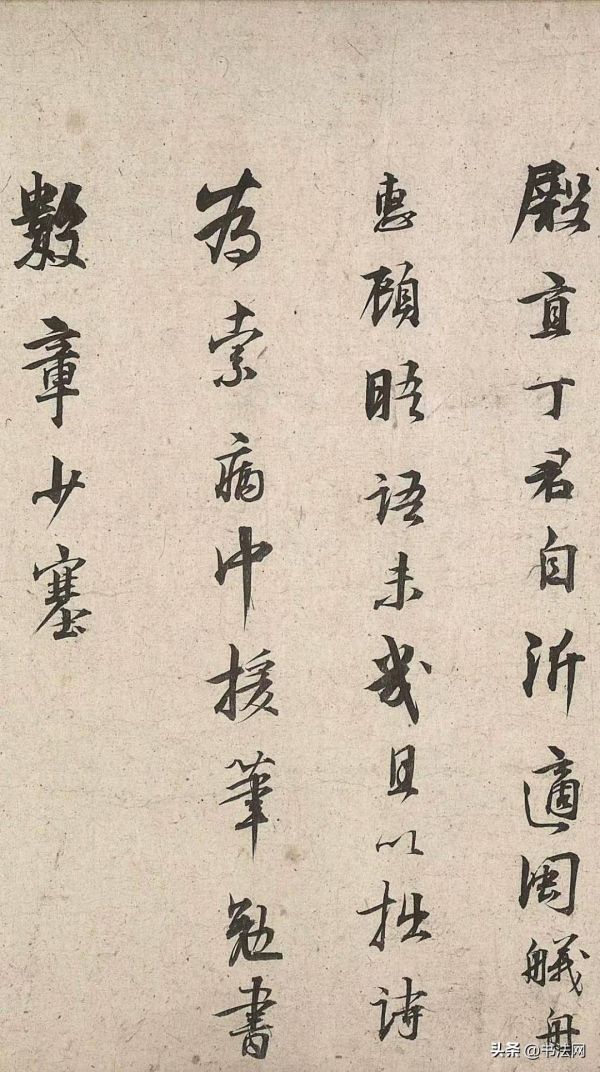 殿直丁君自沂適閩艤舟
惠顧晤語未幾且以拙詩
為索病中援筆勉書
數章少塞
头条 @书法网